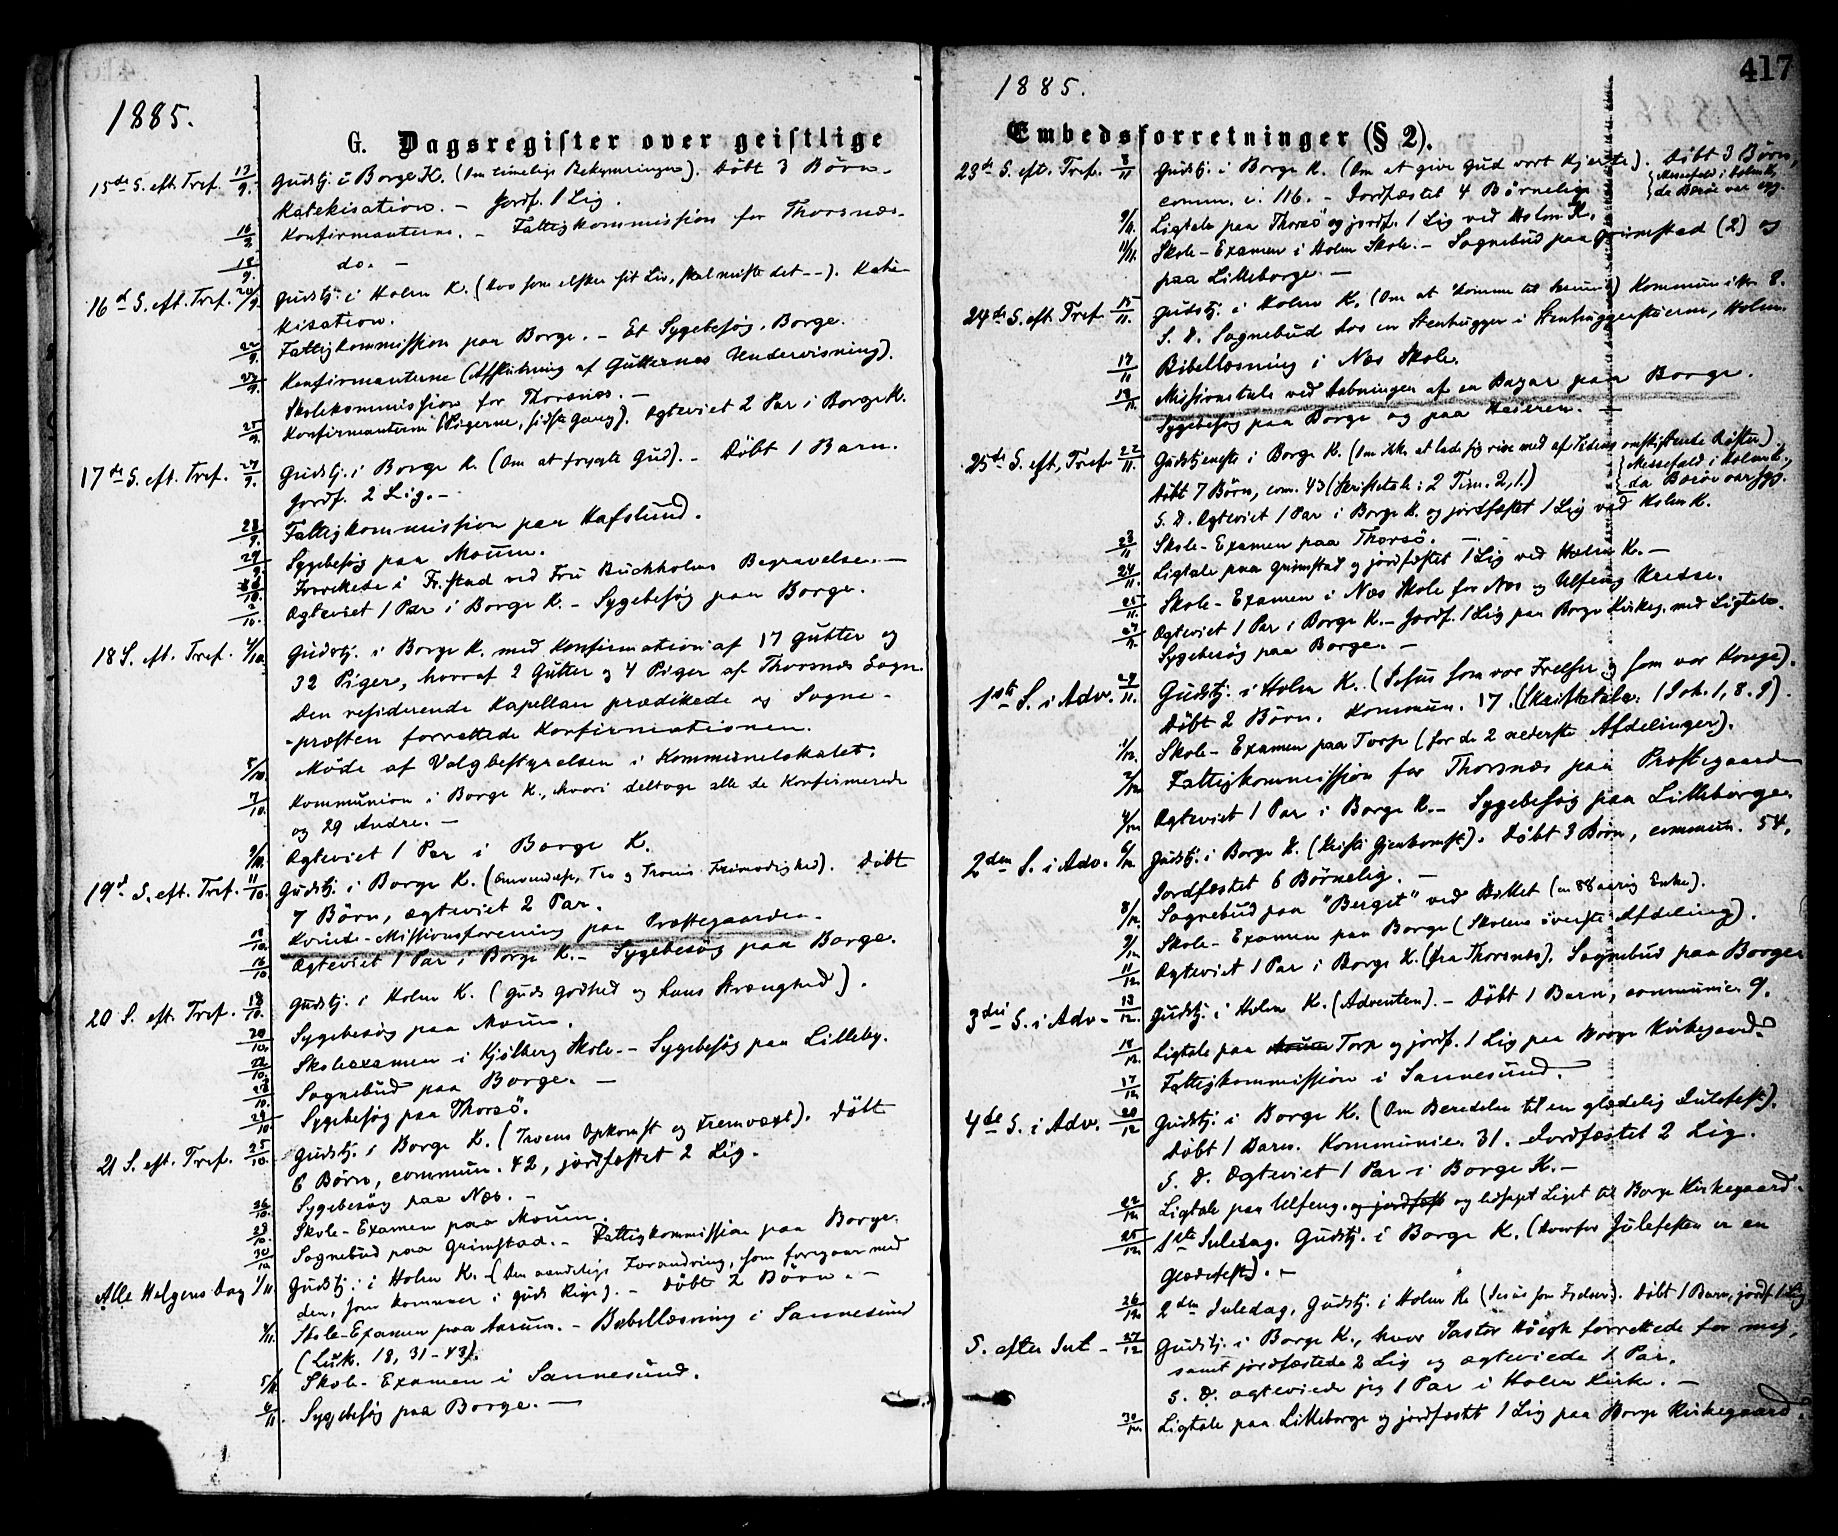 1885.
G. Dagsregister over geistlige
15de S. eft. Tref. 13/9. Gudstj. i Borge K. (Om timelige Bekymringer). Døbt 3 Børn.
Katekisation. – Jordf. 1 Lig.
16/9 Konfirmanterne. – Fattigkommission for Thorsnæs.
18/9. do. –
16d S. eft. Tref. 20/9. Gudstj. i Holm K. (Hvo som elsker sit Liv, skal miste det --). Kate-
kisation.
22/9. Fattigkommission paa Borge. – Et Sygebesøg, Borge.
23/9. Konfirmanterne (Afslutning af Gutternes Undervisning).
Skolekommission for Thorsnæs. –
25/9. Konfirmanterne (Pigerne, sidste Gang). Ægteviet 2 Par i Borge K.
17de S. eft. Tref. 27/9. Gudstj. i Borge K. (Om at frygte Gud). – Døbt 1 Barn.
Jordf. 2 Lig. –
28/9. Fattigkommission paa Hafslund.
29/9. Sygebesøg paa Moum.
Forrettede i Fr.stad ved Fru Buchholms Begravelse. –
2/10. Ægteviet 1 Par i Borge K. – Sygebesøg paa Borge.
18 S. eft. Tref. 4/10. Gudstj. i Borge K. med Konfirmation af 17 Gutter og
32 Piger, hvoraf 2 Gutter og 4 Piger af Thorsnæs Sogn.
Den residerende Kapellan prædikede og Sogne-
præsten forrettede Konfirmationen.
5/10. Møde af Valgbestyrelsen i Kommunelokalet.
7/10. Kommunion i Borge K., hvori deltoge alle de Konfirmerede
og 29 Andre. –
9/10. Ægteviet 1 Par i Borge K.
19d S. eft. Tref. 11/10. Gudstj. i Borge K. (Omvendelse, Tro og Troens Frimodighed). Døbt
7 Børn, ægteviet 2 Par.
Kvinde-Missionsforening paa Præstegaarden.
16/10 Ægteviet 1 Par i Borge K. – Sygebesøg paa Borge.
20 S. eft. Tref. 18/10. Gudstj. i Holm K. (Guds Godhed og hans Strænghed).
20/10. Sygebesøg paa Moum.
22/10. Skoleexamen i Kjølberg Skole. – Sygebesøg paa Lilleby.
Sognebud paa Borge. –
Sygebesøg paa Thorsø.
21 S. eft. Tref. 25/10. Gudstj. i Borge K. (Troens Opkomst og Fremvæxt). Døbt
6 Børn, commun. 42, jordfæstet 2 Lig.
26/10. Sygebesøg paa Næs. –
Skole-Examen paa Moum.
30/10 Sognebud paa Grimstad. – Fattigkommission paa Borge.
Alle Helgens Dag 1/11. Gudstj. i Holm K. – (Den aandelige Forandring, som foregaar med
den, som kommer i Guds Rige). – Døbt 2 Børn. –
4/11. Skole-Examen paa Aarum. – Bibellæsning i Sannesund
(Luk. 18, 31-43).
5/11. Skole-Examen i Sannesund.
6/11. Sygebesøg paa Borge. –
1885.
417
Embedsforretninger (§ 2).
23de S. eft. Tref. 8/11 Gudstj. i Borge K. (Om at give Gud vort Hjerte). Døbt 3 Børn,
{Messefald i Holm K.,
da Broen var
comm. c. 116. – Jordfæstet 4 Børnelig.
9/11. Ligtale paa Thorsø og jordf. 1 Lig ved Holm K.
11/11. Skole-Examen i Holm Skole. – Sognebud paa Grimstad (2) og
paa Lilleborge. –
24de S. eft. Tref. 15/11. Gudstj. i Holm K. (Om at komme til ) Kommunik. 8.
S. D. Sognebud hos en Stenhugger i Stenhuggerstuerne, Holm.
17/11 Bibellæsning i Næs Skole.
18/11. Missionstale ved Aabningen af en Bazar paa Borge.
Sygebesøg paa Borge og paa . –
25de S. eft. Tref. 22/11. Gudstjeneste i Borge K. (Om ikke at lade sig rive med af Tidens omskiftende Røster).
{Messefald i Holm K.,
da
Døbt 7 Børn, com. 43 (Skriftetale: 2 Tim. 2, 1.)
S. D. Ægteviet 1 Par i Borge K. og jordfæstet 1 Lig ved Holm K.
23/11 Skole-Examen paa Thorsø. –
24/11. Ligtale paa Grimstad og jordfæstet 1 Lig ved Holm K. –
25/11. Skole-Examen i Næs Skole for Næs og Ulfeng Kredse.
27/11. Ægteviet 1 Par i Borge K. – Jordf. 1 Lig paa Borge Kirkeg. med Ligtale.
Sygebesøg paa Borge. –
1ste S. i Adv. 29/11. Gudstj. i Holm K. (Jesus som vor Frelser og som vor Konge).
Døbt 2 Børn. Kommun. 17. (Skriftetale. 1 Joh. 1, 8. 9).
1/12. Skole-Examen paa Torp (for de 2 nederste Afdelinger).
2/12 Fattigkommission for Thorsnæs paa Præstegaarden
4/12 Ægteviet 1 Par i Borge K. – Sygebesøg paa Lilleborge.
2den S. i Adv. 6/12 Gudstj. i Borge K. (Kristi Gjenkomst). Døbt 3 Børn, commun. 54,
Jordfæstet 6 Børnelig. –
8/12. Sognebud paa "Berget" ved (en 88aarig Enke).
9/12 Skole-Examen paa Borge (Skolens øverste Afdeling).
11/12 Ægteviet 1 Par i Borge K. (fra Thorsnæs). Sognebud paa Borge.
3die S. i Adv. 13/12. Gudstj. i Holm K. (Adventen). – Døbt 1 Barn, communic. 9.
Ligtale paa Torp og jordf. 1 Lig paa Borge Kirkegaard.
17/12 Fattigkommission i Sannesund.
4de S. i Adv. 20/12 Gudstj. i Borge K. (Om Beredelse til en glædelig Julefest).
Døbt 1 Barn. Kommunic. 31. Jordfæstet 2 Lig.
S. D. Ægteviet 1 Par i Borge K. –
22/12 Ligtale paa Ulfeng, og jordfæst og ledsaget Liget til Borge Kirkegaard.
25/12. 1ste Juledag. Gudstj. i Borge K. (Hvorfor Julefesten er en
Glædesfest). –
26/12 2den Juledag. Gudstj. i Holm K. (Jesus som Frelser). Døbt 1 Barn, jordf. 1 Lig
S. efter Jul – 27/12 Gudstj. i Borge K., hvor Pastor Høegh forrettede for mig,
samt jordfæstede 2 Lig og ægteviede 1 Par.
S. D. ægteviede jeg 1 Par i Holm Kirke. –
30/12. Ligtale paa Lilleborge og jordfæstet 1 Lig paa Borge Kirkegaard.